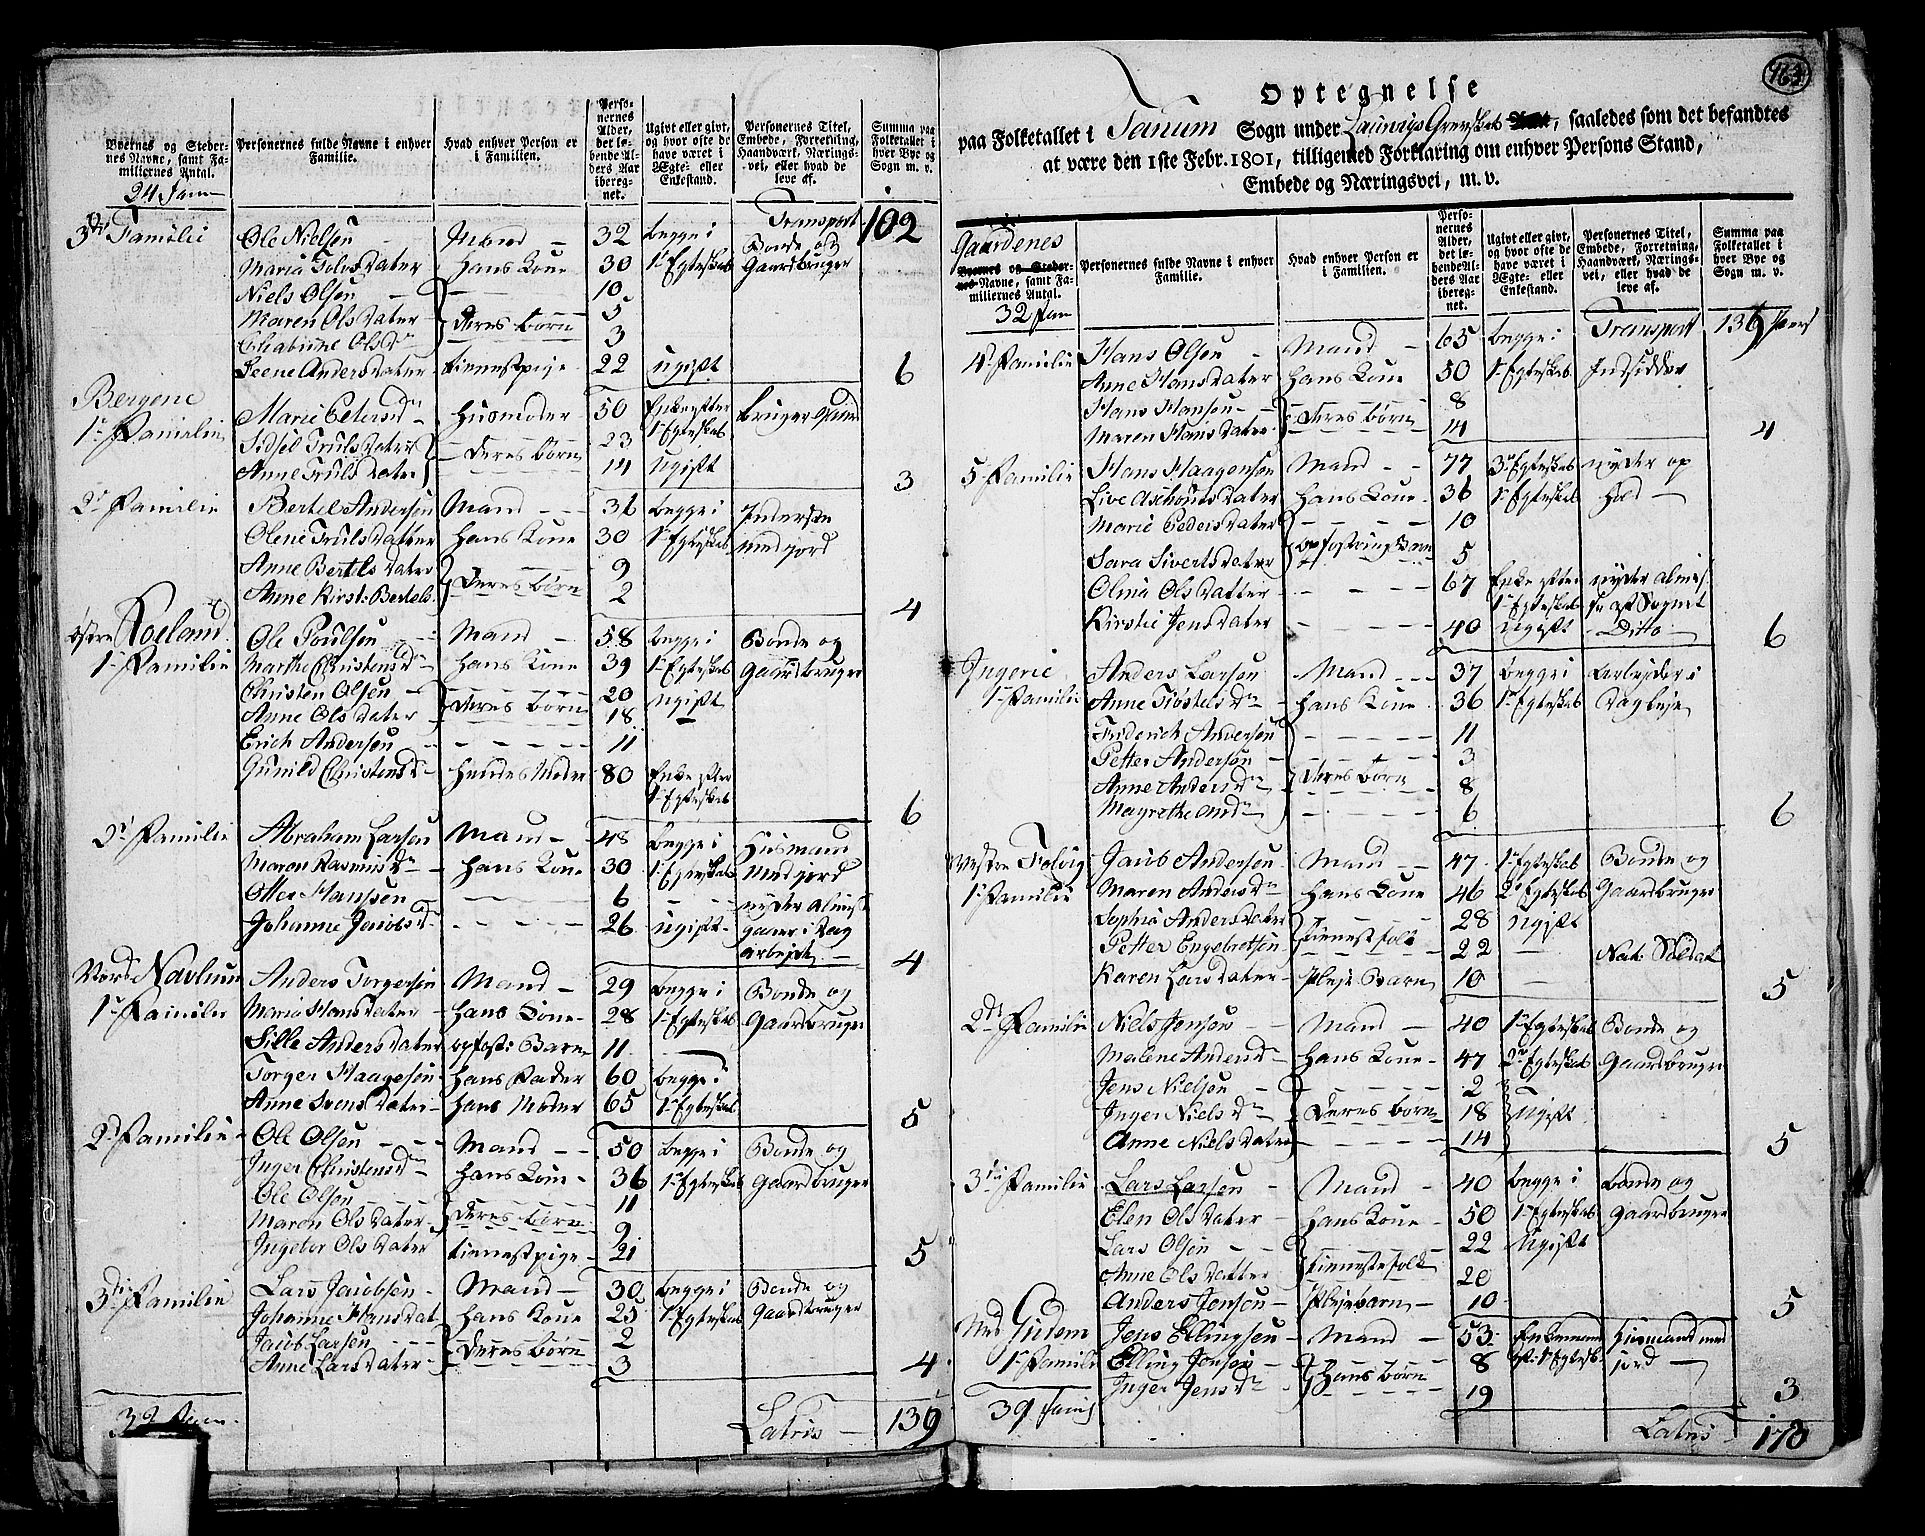 Byernes og Steder-
nes Navne, samt Fa-
miliernes Antal.
Personernes fulde Navne i enhver
Familie.
Hvad enhver Person er
i Familien.
Perso-
nernes
Alder,
det lø-
bende Al-
ders Aar
iberegnet.
Ugivt eller givt,
og hvor ofte de
have været i
Ægte- eller
Enkestand.
Personernes Titel,
Embede, Forretning,
Haandværk, Nærings-
vei, eller hvad de
leve af.
Summa paa
Folketallet i
hver Bye og
Sogn m. v.
24 Fam
Transport 102
3de Familie Ole Nielsøn Mand 32 begge i Bonde og
Maria Tolvsdater Hans Kone 30 1te Egteskab Gaardbruger
Niels Olsøn 10
Maren Olsdater Deres børn 5
Olsdr 3
Leene Andersdater tienestpige 22 ugift 6
Bergene
1te Familie Marie Petersdr Husmoder 50 Enke efter bruger
Sidsel Trulsdater Deres børn 23 1te Egteskab
Anne Trulsdater 14 ugift 3
2de Familie Bertel Andersøn Mand 36 begge i Inderste
Olene Trulsdatter Hans Kone 30 1te Egteskab med jord
Anne Bertelsdater Deres børn 9
Anne Kirst: Bertels 2 4
østre Roeland
1te Familie Ole Poulsøn Mand 58 begge i Bonde og
Marthe Christensdr Hans Kone 39 1te Egteskab Gaardbruger
Christen Olsøn Deres børn 20 ugift
Anne Olsdater 18
Erich Andersøn 11
Gunild Christensdr Hendes Moder 80 Enke efter
1te Egteskab 6
2de Familie Abraham Larsøn Mand 48 begge i Huusmand
Maren Rasmusdr Hans Kone 30 1te Egteskab med jord
Otter Hansøn 6 nyder almis
Johanne Jacobsdr 26 ugift gaar i Dag
arbejde 4
Navlum
1te Familie Anders Torgersøn Mand 29 begge i Bonde og
Maria Hansdater Hans Kone 28 1te Egteskab Gaardbruger
Sille Andersdater opfost: Barn 11
Torger Haagesøn Hans Fader 60 begge i
Anne Svensdater Hans Moder 65 1te Egteskab 5
2de Familie Ole Olsøn Mand 50 begge i Bonde og
Inger Christensdr Hans Kone 36 1te Egteskab Gaardbruger
Ole Olsøn Deres børn 11
Maren Olsdater 9
Ingebor Olsdater tienestpige 21 5
3de Familie Lars Jacobsøn Mand 30 begge i Bonde og
Johanne Hansdat Hans Kone 25 1te Egteskab Gaardbruger
Jacob Larsøn Deres børn 2
Anne Larsdater 3 4
32 Fam Latris 139
463
Optegnelse
paa Folketallet i Tanum Sogn under Laurvigs Grevskab Amt, saaledes som det befandtes
at være den 1ste Febr. 1801, tilligemed Forklaring om enhver Persons Stand,
Embede og Næringsvei, m. v.
Gaardenes
Byernes og Steder-
nes Navne, samt Fa-
miliernes Antal.
Personernes fulde Navne i enhver
Familie.
Hvad enhver Person er
i Familien.
Perso-
nernes
Alder,
det lø-
bende Al-
ders Aar
iberegnet.
Ugivt eller givt,
og hvor ofte de
have været i
Ægte- eller
Enkestand.
Personernes Titel,
Embede, Forretning,
Haandværk, Nærings-
vei, eller hvad de
leve af.
Summa paa
Folketallet i
hver Bye og
Sogn m. v.
32 Fam Transport 139 Pers
4de Familie Hans Olsøn Mand 65 begge i Indsidder
Anne Hansdater Hans Kone 50 1te Egteskab
Hans Hansøn Deres børn 8
Maren Hansdater 14 4
5 Familie Hans Haagensøn Mand 77 3de Egteskab nyder op
Live Hans Kone 36 1te Egteskab hold
Marie Pedersdater 10
Sara Sivertsdater opfostring Barn 5
Olina Olsdatter 67 Enke efter nyder almis
1te Egteskab se af Sognet
Kirstie Jensdater 40 ugift Ditto 6
Ingerie
1te Familie Anders Larsøn Mand 37 begge i arbejder i
Anne Hans Kone 36 1te Egteskab Dagleje
Friderich Andersøn 11
Petter Andersøn 3
Anne Andersdr Deres børn 8
Magrethe Andr 6 6
Vestre Tolvig
1te Familie Jacob Andersøn Mand 47 1te Egteskab Bonde og
Maren Andersdr Hans Kone 46 2de Egteskab Gaardbruger
Sophia Andersdater tienestfolk 28 ugift
Petter Engebretsøn 22 Nat: Soldat
Karen Larsdater Pleje Barn 10 5
2de Familie Niels Jensøn Mand 40 1te Egteskab Bonde og
Malene Andersdr Hans Kone 47 2de Egteskab Gaardbruger
Jens Nielsøn 2
Inger Nielsdr Deres børn 18 ugift
Anne Nielsdater 14 5
3die Familie Lars Larsøn Mand 40 begge i bonde og
Elen Olsdater Hans Kone 50 1te Egteskab Gaardbruger
Lars Olsøn tienestefolk 22 ugift
Anne Olsdatter 20
Anders Jensøn Plejebarn 10 5
Ned Gudem
1te Familie Jens Ellingsøn Mand 53 Enkemand Huusmand med
Elling Jensøn Hans børn 8 eft: 1te Egtesk: jord
Inger Jensdr 19 3
39 Fam Latris 170